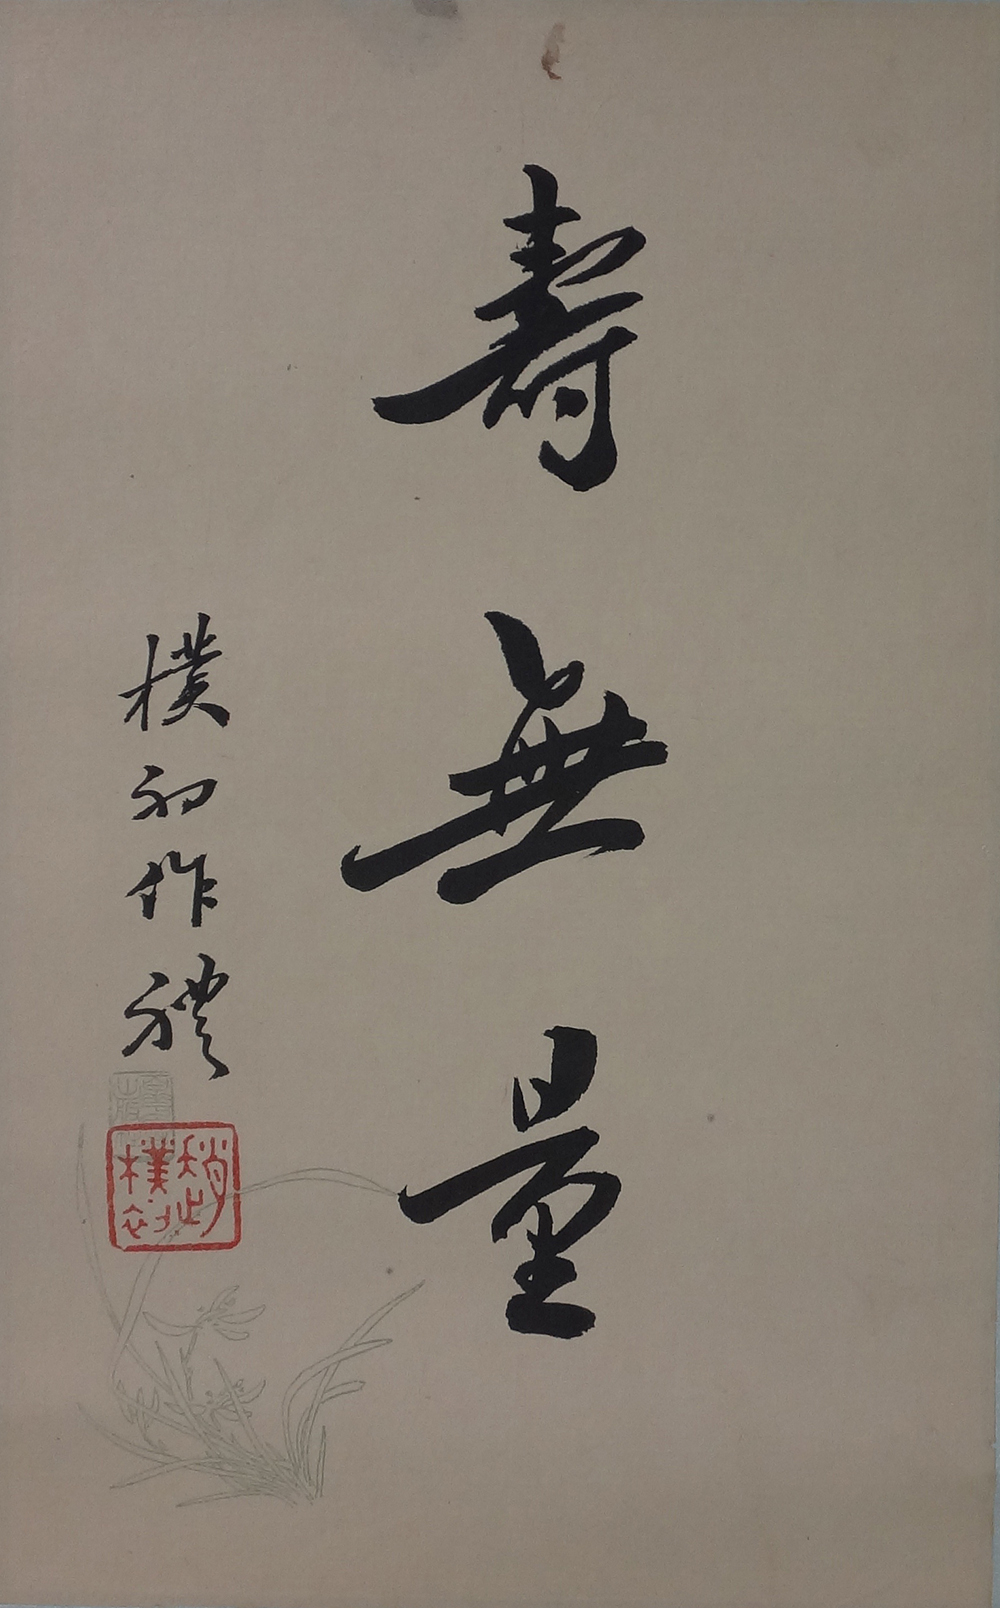 壽無量
樸初作禮
趙樸初